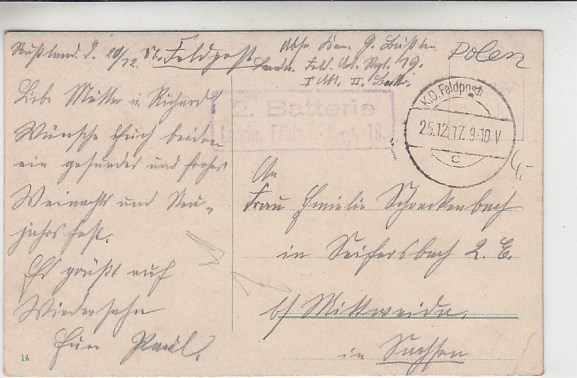 Rußland. d. 20/12. 17. Feldpost
Abs. Kan. G.
Landw. Feld. Art. Regt. 19.
I Abt. II. Batt.
Polen
2. Batterie
Landw. Feld Regt. 19.
K.D. Feldpost.
25.12.17. 9-10 V
c
4,-
Liebe Mutter u. Richard!
Wünsche Euch beiden
ein gesundes und frohes
Weinachts und Neu-
jahrs fest.
Es grüßt auf
Wiedersehn
Euer Paul.
An
Frau Emilie Schreckenbach
in Seifersbach 2. E.
b/ Mittweida.
in Sachsen
14